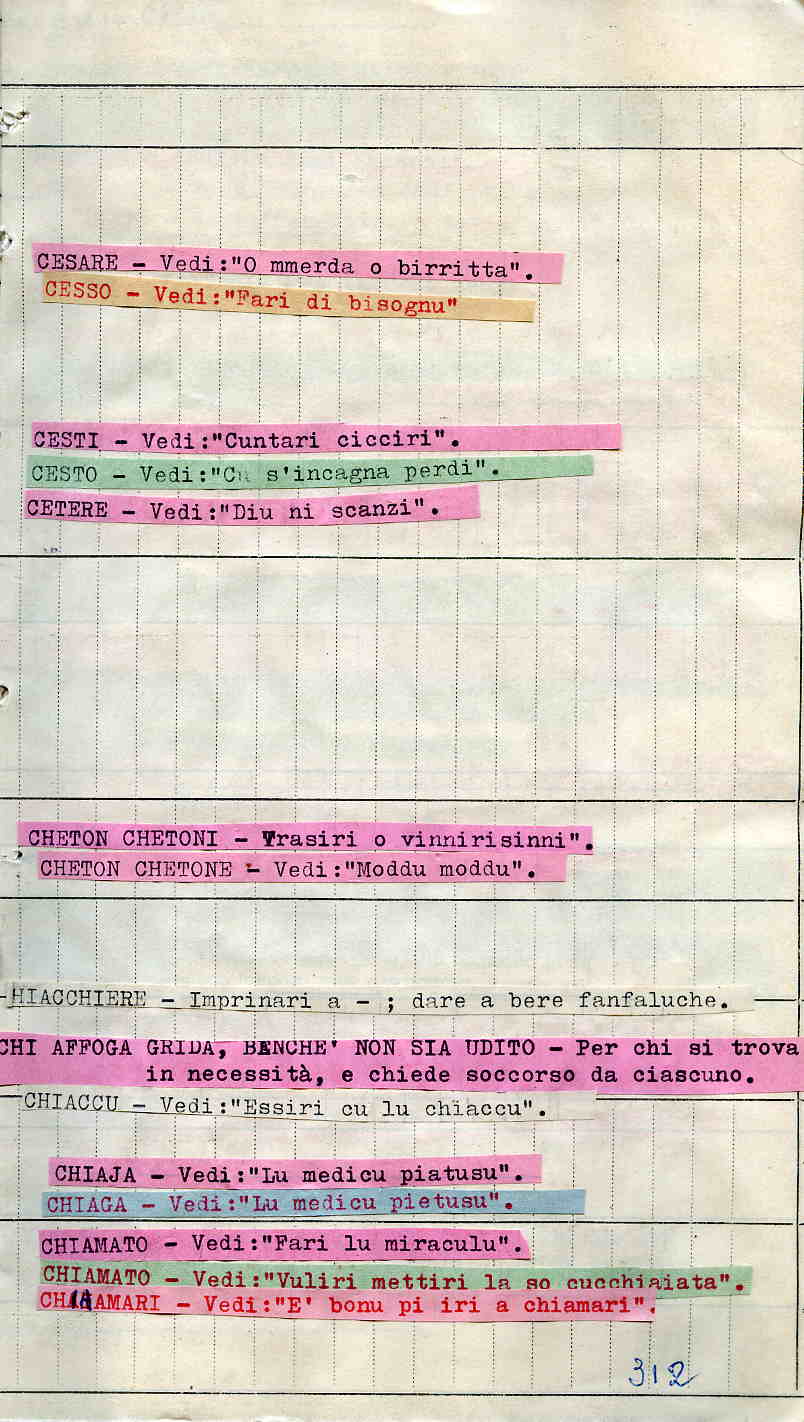 CESARE - Vedi:"O mmerda o birritta".
CESSO - Vedi:"Fari di bisognu"
CESTI - Vedi:"Cuntari cicciri".
CESTO - Vedi:"Cu s'incagna perdi".
CETERE - Vedi:"Diu ni scanzi".
CHETON CHETONI - Trasiri o vinnirisinni".
CHETON CHETONE - Vedi:"Moddu moddu".
HIACCHIERE - Imprinari a - ; dare a bere fanfaluche.
CHI AFFOGA GRIDA, BENCHE' NON SIA UDITO - Per chi si trova
in necessità, e chiede soccorso da ciascuno.
CHIACCU - Vedi:"Essiri cu lu chiaccu".
CHIAJA - Vedi:"Lu medicu piatusu".
CHIAGA - Vedi:"Lu medicu pietusu".
CHIAMATO - Vedi:"Fari lu miraculu".
CHIAMATO - Vedi:"Vuliri mettiri la so cucchiaiata".
CHIAMARI - Vedi:"E' bonu pi iri a chiamari".
312